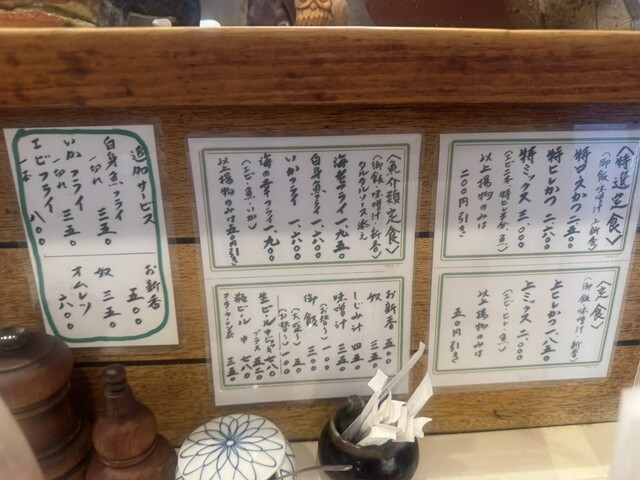 〈特選定食〉
(御飯・味噌汁・新香)
特ロースかつ 二五〇〇
特ヒレかつ 二六〇〇
特ミックス 三一〇〇
以上揚物のみは
二〇〇円引き
〈定食〉
(御飯・味噌汁・新香)
上ヒレかつ 一八五〇
上ミックス 二一〇〇
(エビ・ヒレ・魚)
以上揚物のみは
五〇円引き
〈魚介類定食〉
(御飯・味噌汁・新香)
タルタルソース添え
海老フライ 一九五〇
白身魚フライ 一六〇〇
いかフライ 一六〇〇
海の幸フライ 一九〇〇
(エビ・魚・いか)
以上揚物のみは五〇円引き
お新香 五〇〇
奴 三五〇
しじみ汁 四五〇
味噌汁 三〇〇
御飯 三〇〇
生ビール中ジョッキ 七八〇
グラス 五二〇
瓶ビール 中 七八〇
追加サービス
白身魚フライ 三五〇
一切れ
いかフライ 三五〇
一切れ
エビフライ 八〇〇
一本
お新香 五〇〇
奴 三五〇
オムレツ 六〇〇